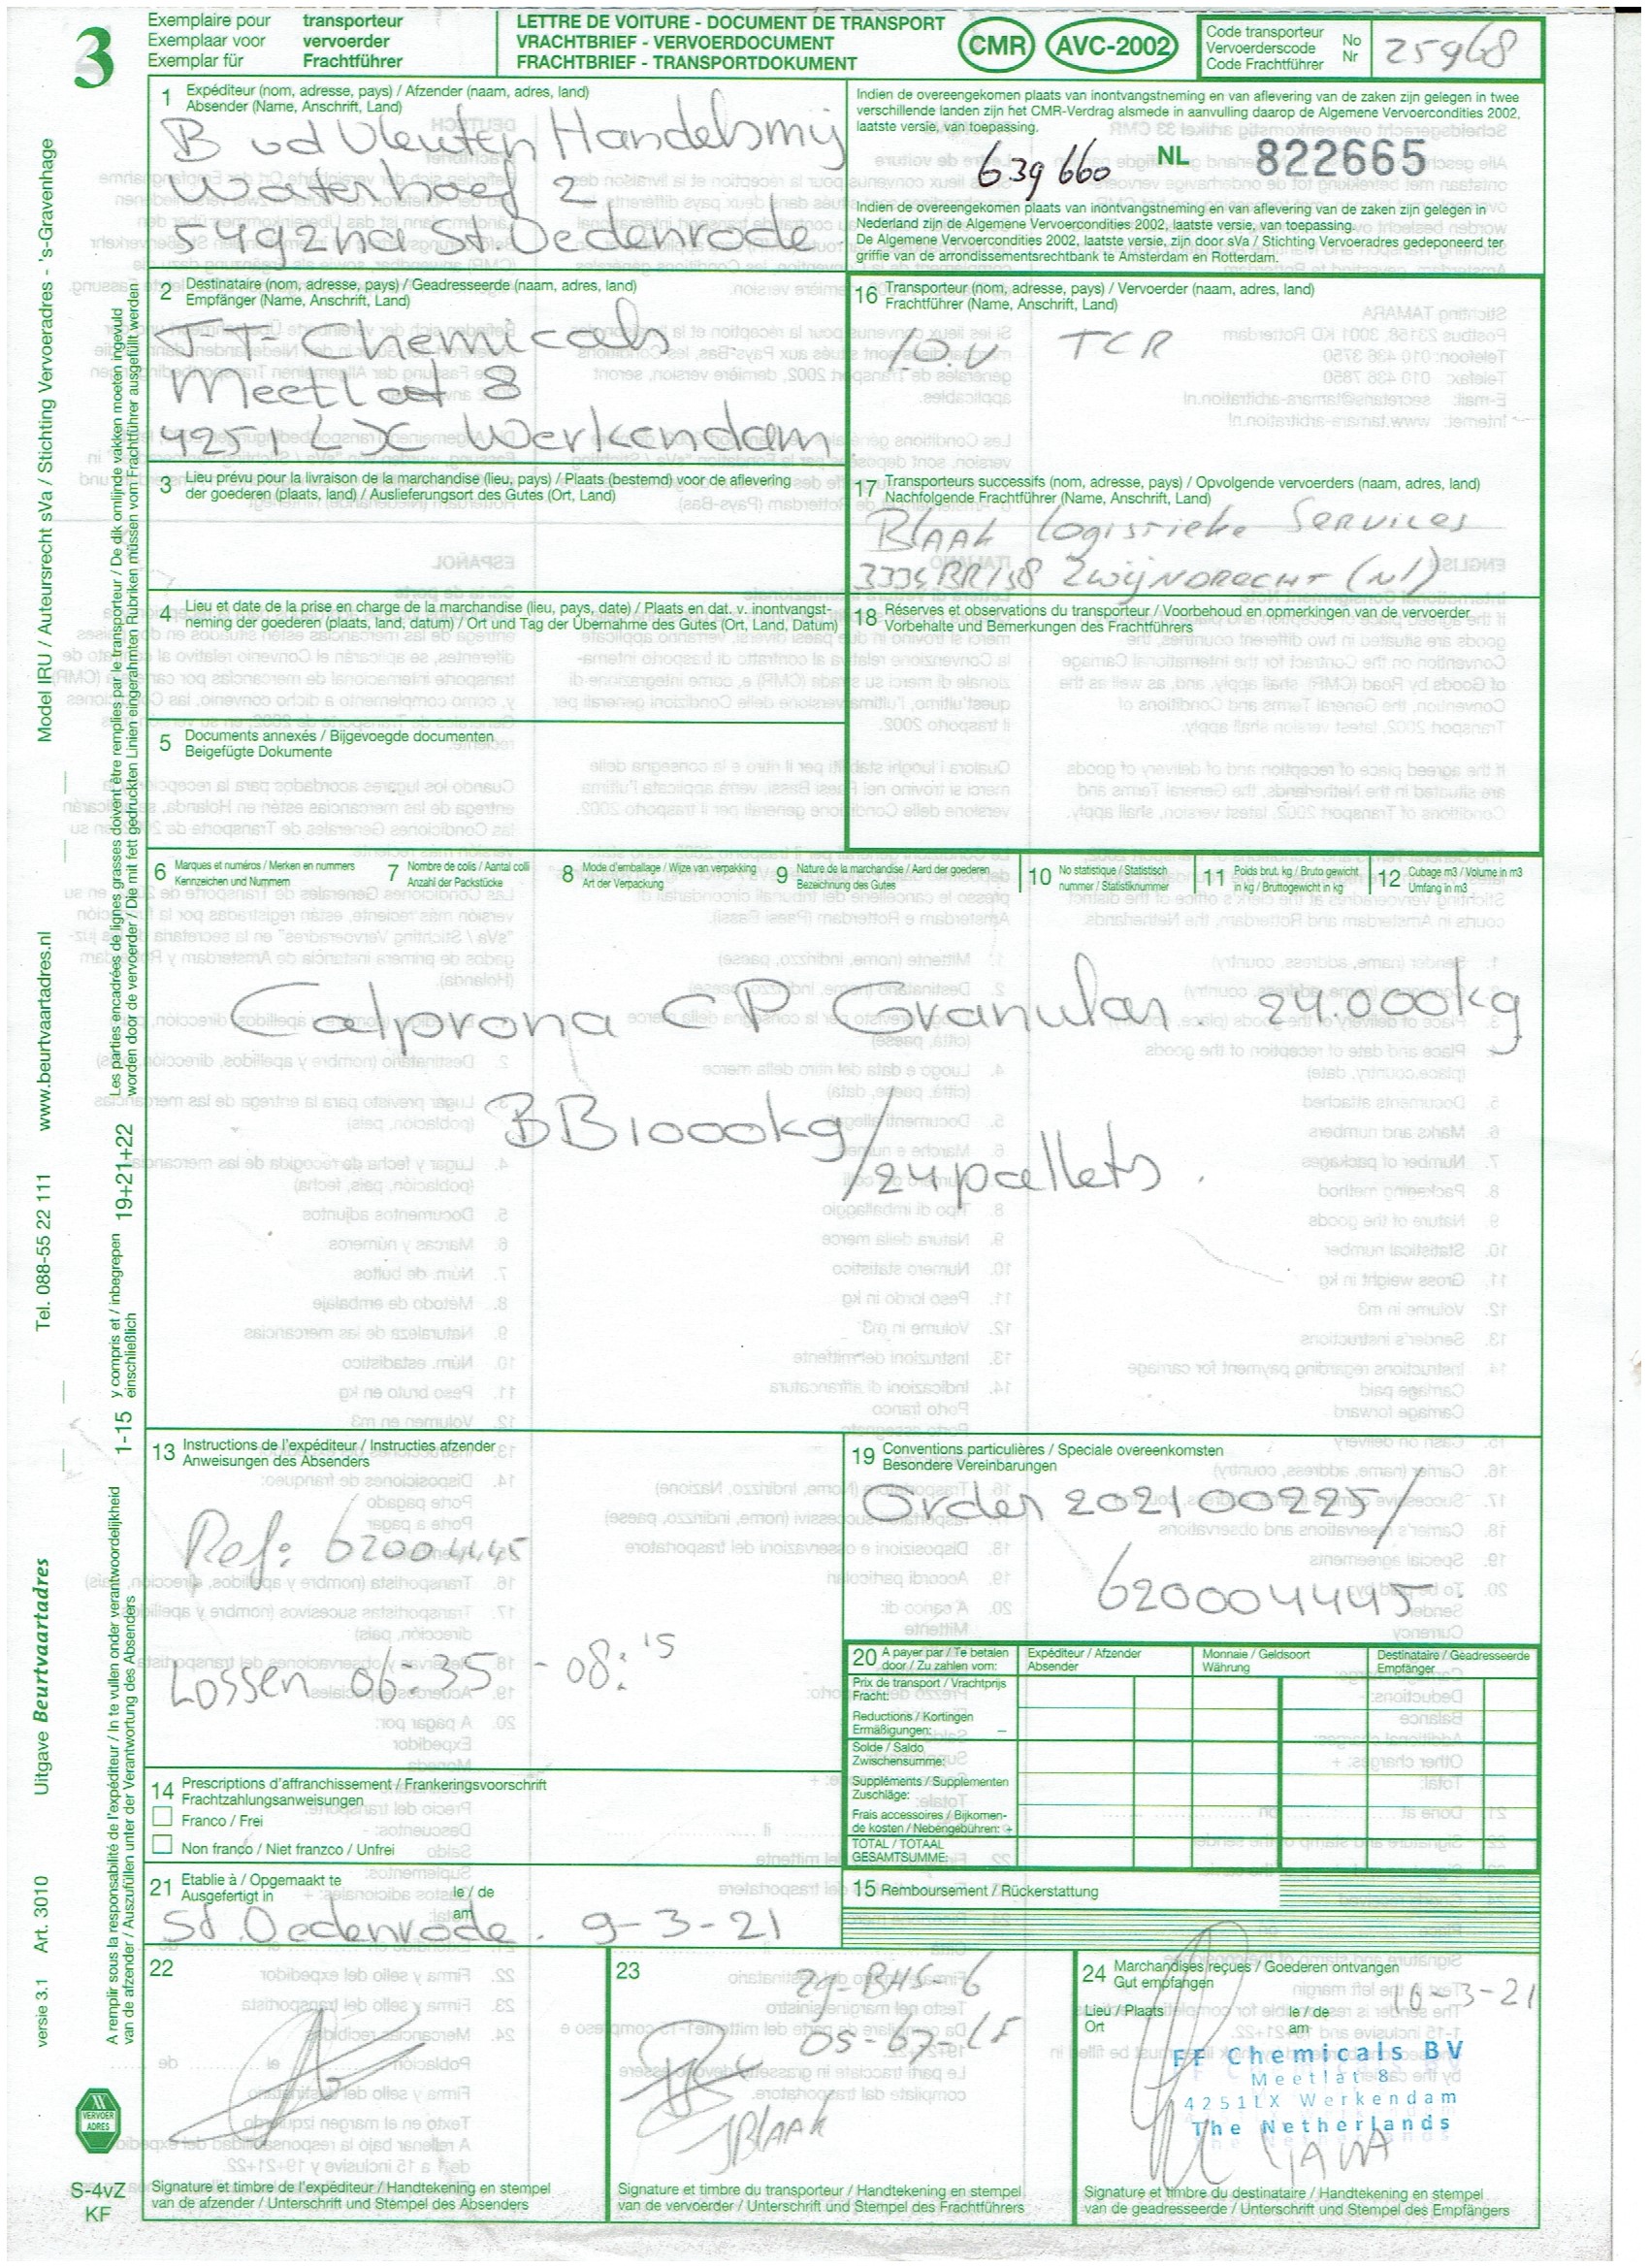 3
Exemplaire pour transporteur
Exemplaar voor vervoerder
Exemplar für Frachtführer
LETTRE DE VOITURE - DOCUMENT DE TRANSPORT
VRACHTBRIEF - VERVOERDOCUMENT
FRACHTBRIEF - TRANSPORTDOKUMENT
CMR
AVC-2002
Code transporteur
Vervoerderscode
Code Frachtführer
No
Nr
25968
1 Expéditeur (nom, adresse, pays) / Afzender (naam, adres, land)
Absender (Name, Anschrift, Land)
B vd Vleuten Handelsmij
Waterhoef 2
5492 St Oedenrode
Indien de overeengekomen plaats van inontvangstneming en van aflevering van de zaken zijn gelegen in twee
verschillende landen zijn het CMR-Verdrag alsmede in aanvulling daarop de Algemene Vervoercondities 2002,
laatste versie, van toepassing.
639660
NL 822665
Indien de overeengekomen plaats van inontvangstneming en van aflevering van de zaken zijn gelegen in
Nederland zijn de Algemene Vervoercondities 2002, laatste versie, van toepassing.
De Algemene Vervoercondities 2002, laatste versie, zijn door sVa / Stichting Vervoeradres gedeponeerd ter
griffie van de arrondissementsrechtbank te Amsterdam en Rotterdam.
2 Destinataire (nom, adresse, pays) / Geadresseerde (naam, adres, land)
Empfänger (Name, Anschrift, Land)
F.F. Chemicals
Meetlat 8
4251 LX Werkendam
16 Transporteur (nom, adresse, pays) / Vervoerder (naam, adres, land)
Frachtführer (Name, Anschrift, Land)
TCR
3 Lieu prévu pour la livraison de la marchandise (lieu, pays) / Plaats (bestemd) voor de aflevering
der goederen (plaats, land) / Auslieferungsort des Gutes (Ort, Land)
17 Transporteurs successifs (nom, adresse, pays) / Opvolgende vervoerders (naam, adres, land)
Nachfolgende Frachtführer (Name, Anschrift, Land)
BLAAK Logistieke Services
3334 BR/38 Zwijndrecht (Nl)
4 Lieu et date de la prise en charge de la marchandise (lieu, pays, date) / Plaats en dat. v. inontvangst-
neming der goederen (plaats, land, datum) / Ort und Tag der Übernahme des Gutes (Ort, Land, Datum)
18 Réserves et observations du transporteur / Voorbehoud en opmerkingen van de vervoerder
Vorbehalte und Bemerkungen des Frachtführers
5 Documents annexés / Bijgevoegde documenten
Beigefügte Dokumente
6 Marques et numéros / Merken en nummers
Kennzeichen und Nummern
7 Nombre de colis / Aantal colli
Anzahl der Packstücke
8 Mode d'emballage / Wijze van verpakking
Art der Verpackung
9 Nature de la marchandise / Aard der goederen
Bezeichnung des Gutes
10 No statistique / Statistisch
nummer / Statistiknummer
11 Poids brut, kg / Bruto gewicht
in kg / Bruttogewicht in kg
12 Cubage m3 / Volume in m3
Umfang in m3
Calprona CP Granular. 24.000kg
BB1000kg
/24pallets.
13 Instructions de l'expéditeur / Instructies afzender
Anweisungen des Absenders
Ref: 62004445
Lossen 06:35 - 08:15
19 Conventions particulières / Speciale overeenkomsten
Besondere Vereinbarungen
Order 202100225/
620004445
20 A payer par / Te betalen
door / Zu zahlen vom:
Expéditeur / Afzender
Absender
Monnaie / Geldsoort
Währung
Destinataire / Geadresseerde
Empfänger
Prix de transport / Vrachtprijs
Fracht:
Reductions / Kortingen
Ermäßigungen: –
Solde / Saldo
Zwischensumme:
Suppléments / Supplementen
Zuschläge:
Frais accessoires / Bijkomen-
de kosten / Nebengebühren: +
TOTAL / TOTAAL
GESAMTSUMME:
14 Prescriptions d'affranchissement / Frankeringsvoorschrift
Frachtzahlungsanweisungen
Franco / Frei
Non franco / Niet franzco / Unfrei
21 Etablie à / Opgemaakt te le / de
Ausgefertigt in am
St. Oedenrode. 9-3-21
15 Remboursement / Rückerstattung
22
Signature et timbre de l'expéditeur / Handtekening en stempel
van de afzender / Unterschrift und Stempel des Absenders
23
29-BHS-6
05-67-LF
JBLAAK
Signature et timbre du transporteur / Handtekening en stempel
van de vervoerder / Unterschrift und Stempel des Frachtführers
24 Marchandises reçues / Goederen ontvangen
Gut empfangen
Lieu / Plaats le / de
Ort am
10-3-21
FF Chemicals BV
Meetlat 8
4251LX Werkendam
The Netherlands
Signature et timbre du destinataire / Handtekening en stempel
van de geadresseerde / Unterschrift und Stempel des Empfängers
Model IRU / Auteursrecht sVa / Stichting Vervoeradres - 's-Gravenhage
www.beurtvaartadres.nl
Tel. 088-55 22 111
Uitgave Beurtvaartadres
Art. 3010
versie 3.1
Les parties encadrées de lignes grasses doivent être remplies par le transporteur / De dik omlijnde vakken moeten ingevuld
worden door de vervoerder / Die mit fett gedruckten Linien eingerahmten Rubriken müssen vom Frachtführer ausgefüllt werden
19+21+22
y compris et / inbegrepen
einschließlich
1-15
A remplir sous la responsabilité de l'expéditeur / In te vullen onder verantwoordelijkheid
van de afzender / Auszufüllen unter der Verantwortung des Absenders
VERVOER
ADRES
S-4vZ
KF